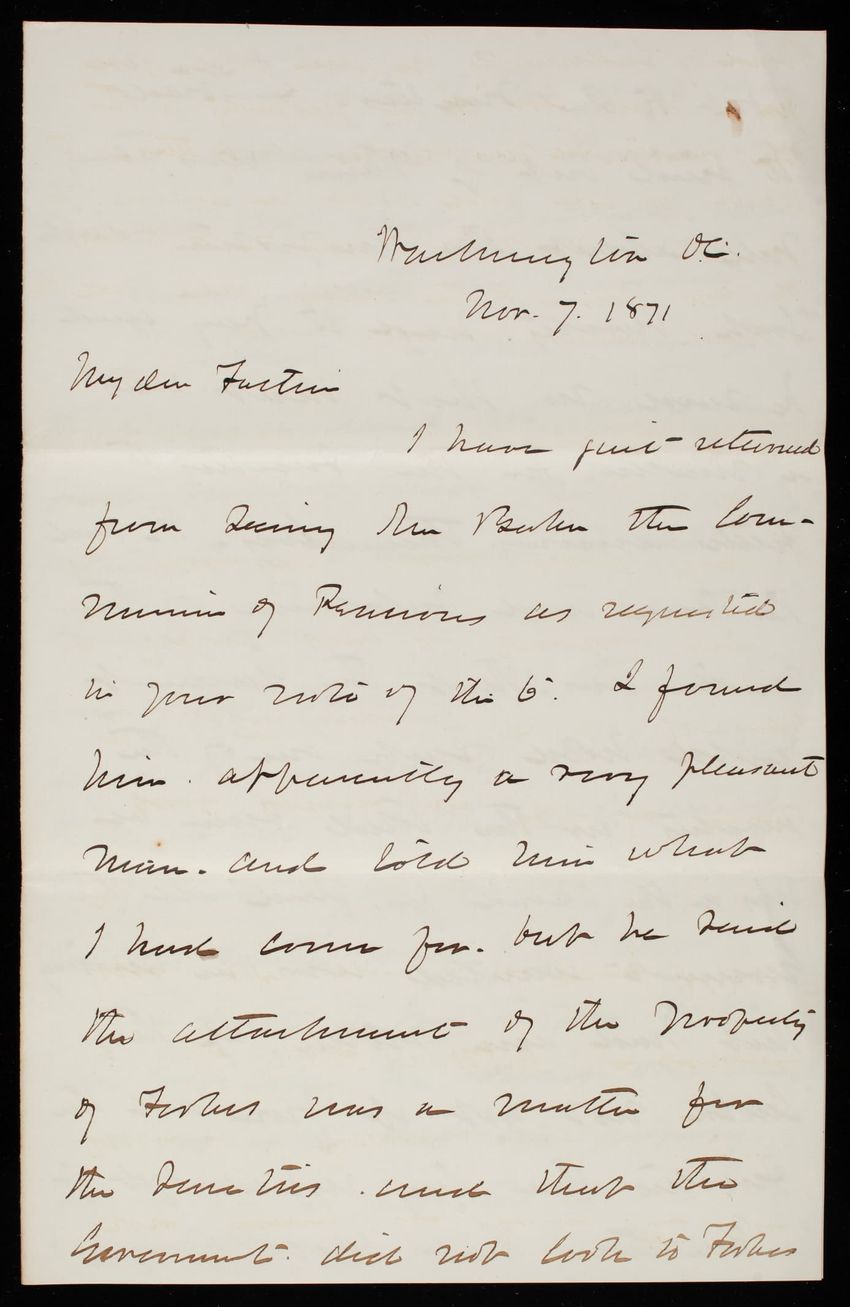 Washington D.C.
Nov. 7. 1871
My dear
I have just returned
from seeing Mr Baker the Com-
missioner of Pensions as requested
in your note of the 6. I found
him apparently a very pleasant
man. and told him what
I had come for. but he said
the attachment of the property
of Forbes was a matter for
the sureties. and that the
Government did not look to Forbes